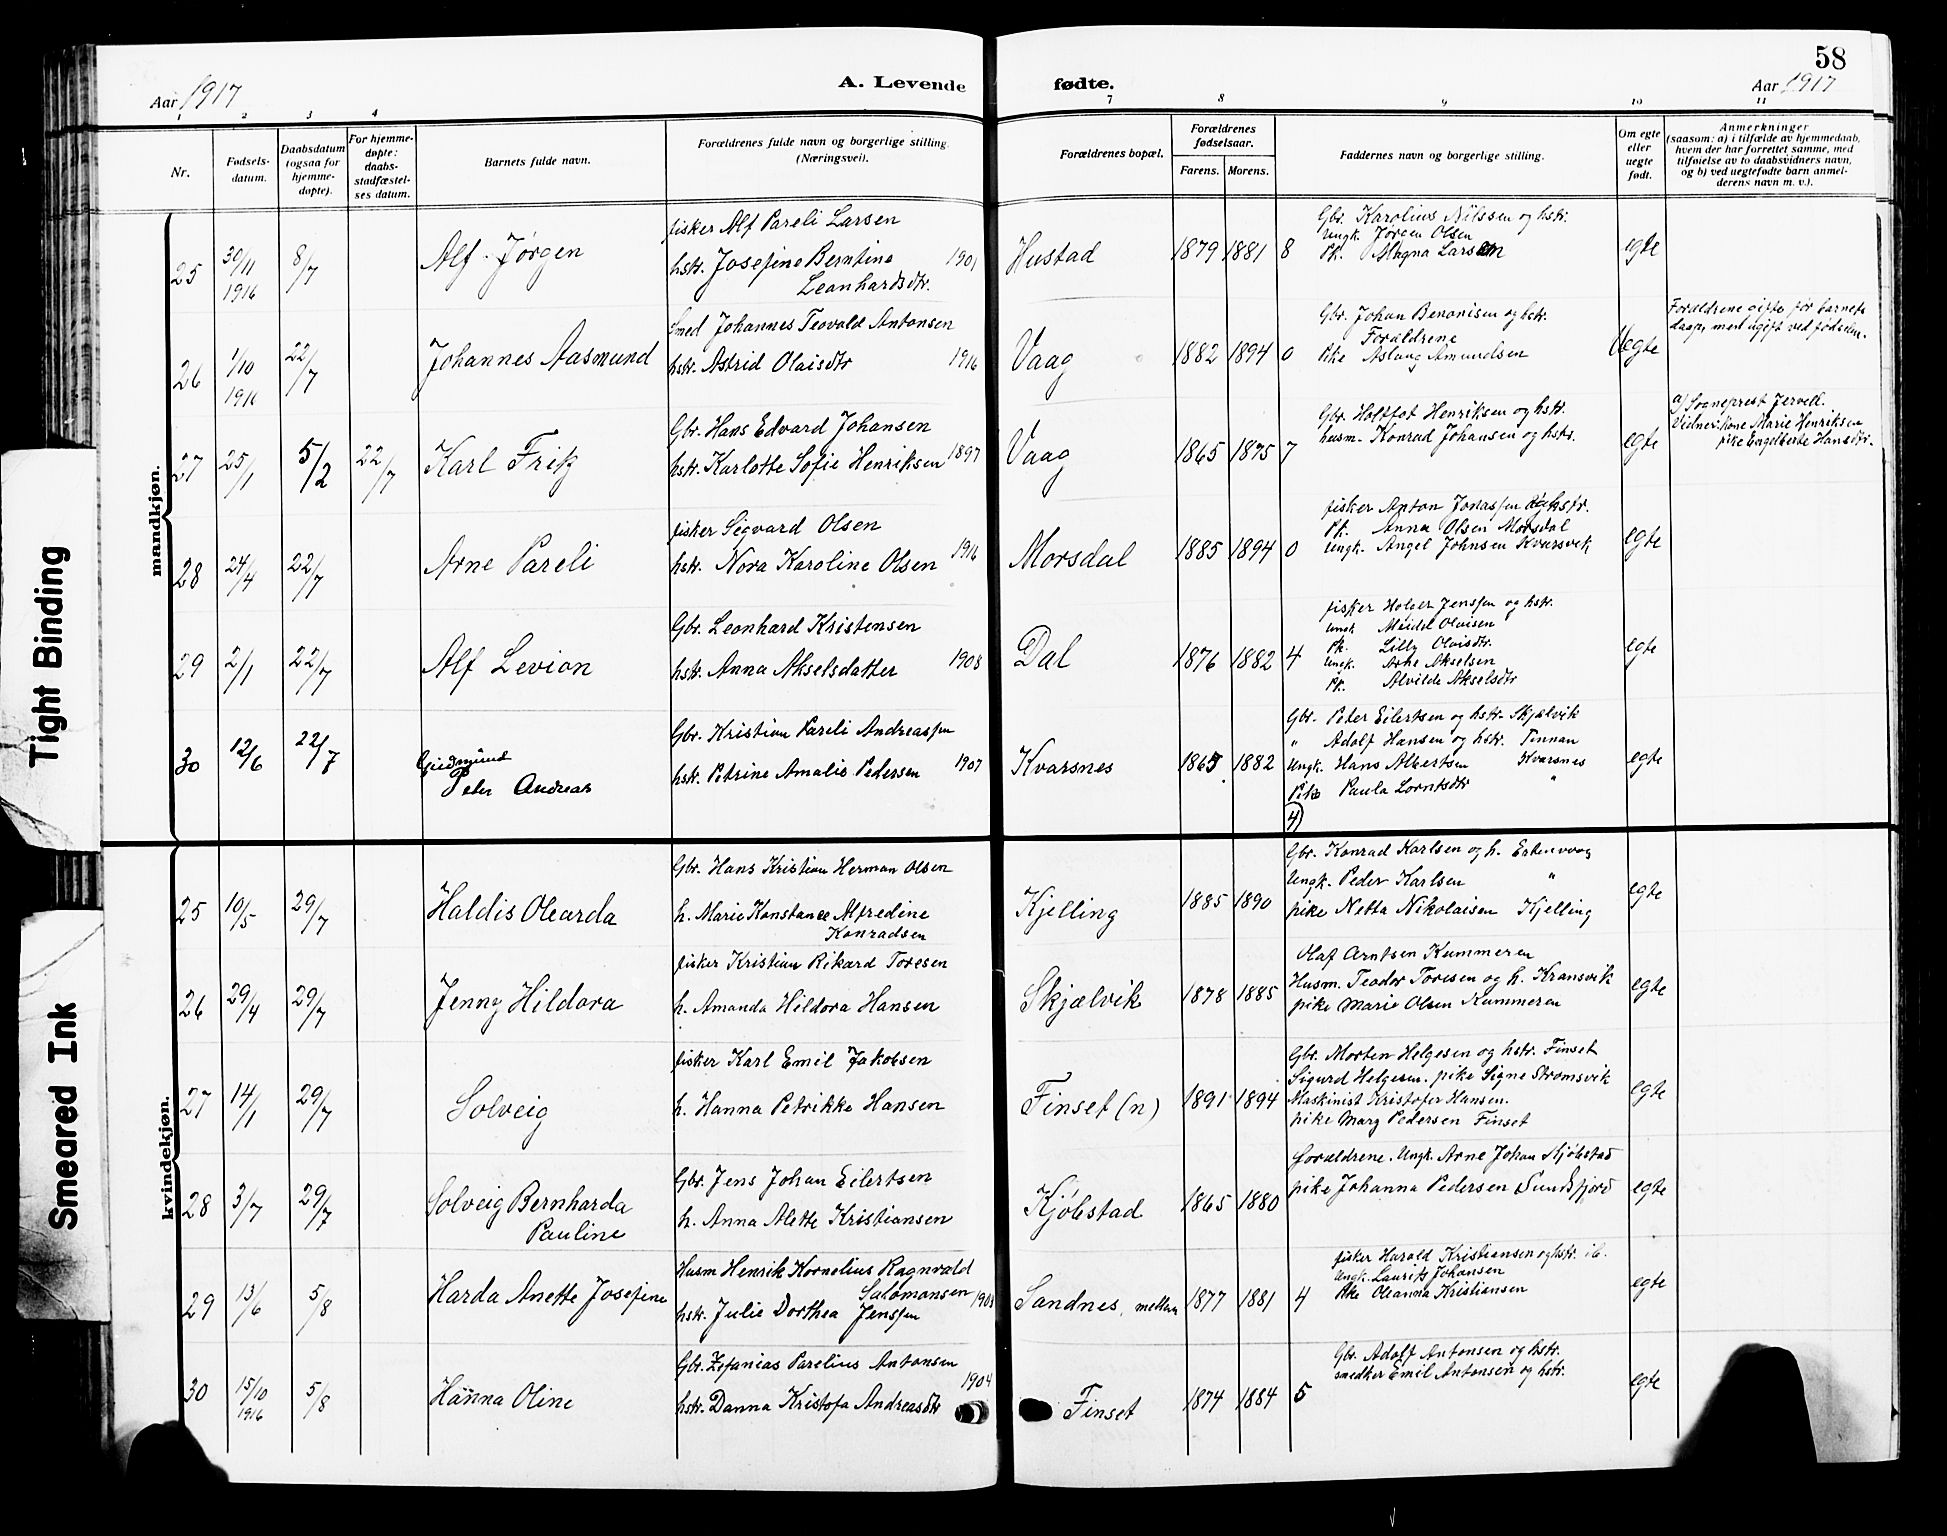 58
Aar 1917
A. Levende
fødte.
Aar 1917
1 2 3 4 7 8 9 10 11
Nr.
Fødsels-
datum.
Daabsdatum
(ogsaa for
hjemme-
døpte).
For hjemme-
døpte:
daabs-
stadfæstel-
ses datum.
Barnets fulde navn.
Forældrenes fulde navn og borgerlige stilling
(Næringsvei).
Forældrenes bopæl.
Forældrenes
fødselsaar.
Farens. Morens.
Faddernes navn og borgerlige stilling.
Om egte
eller
uegte
født.
Anmerkninger
(saasom: a) i tilfælde av hjemmedaab,
hvem der har forrettet samme, med
tilføielse av to daabsvidners navn,
og b) ved uegtefødte barn anmel-
derens navn m. v.).
mandkjøn.
25 30/11 1916 8/7 Alf Jørgen
fisker Alf Pareli Larsen
hstr. Josefine Berntine 1901
Leonhardsdtr.
Hustad 1879 1881 8
Gbr. Karolius Nilssen og hstr.
Ungk. Jørgen Olsen
Pk. Magna Larsen
egte
26 1/10 1916 22/7 Johannes Aasmund
Smed Johannes Teovald Antonsen
hstr. Astrid Olaisdtr 1916
Vaag 1882 1894 0
Gbr. Johan Benonisen og hstr.
Forældrene
Pike Aslaug Amundsen
Uegte
Forældrene gifte før barnets
daap, men ugift ved fødselen.
27 25/1 5/2 22/7 Karl Fritz
Gbr. Hans Edvard Johansen
hstr. Karlotte Sofie Henriksen 1897
Vaag 1865 1875 7
Gbr. Holtfot Henriksen og hstr.
husm. Konrad Johansen og hstr.
egte
a) Sogneprest Jervell.
Vidner: kone Marie Henriksen
pike Engelberte Hansdtr.
28 24/4 22/7 Arne Pareli
fisker Sigvard Olsen
hstr. Nora Karoline Olsen 1916
Morsdal 1885 1894 0
fisker Anton Jonassen og hstr.
Pk. Anna Olsen Morsdal
Ungk. Angel Johnsen Kvarsvik
egte
29 2/1 22/7 Alf Levion
Gbr. Leonhard Kristensen
hstr. Anna Akselsdatter 1903
Dal 1876 1882 4
fisker Holger Jenssen og hstr.
Ungk Meidel Olvisen
Pk. Lilly Olvisdtr.
Ungk. Arne Akselsen
Pk. Alvilde Akselsdtr
egte
30 12/6 22/7 Gudmund
Peter Andreas
Gbr. Kristian Pareli Andreassen
hstr. Petrine Amalie Pedersen 1907
Kvarsnes 1865 1882
Gbr. Peter Eilertsen og hstr. Skjælvik
" Adolf Hansen og hstr. Tinnan
Ungk. Hans Albertsen Kvarsnes
Pike Paula Lorntsdtr "
4)
egte
kvindekjøn.
25 10/5 29/7 Haldis Olearda
Gbr. Hans Kristian Herman Olsen
h. Marie Konstance Alfredine
Konradsen
Kjelling 1885 1890
Gbr. Konrad Karlsen og h. Estenvaag
Ungk. Peder Karlsen "
pike Netta Nikolaisen Kjelling
egte
26 29/4 29/7 Jenny Hildora
fisker Kristian Rikard Toresen
h. Amanda Hildora Hansen
Skjælvik 1878 1885
Olaf Arntsen Kummeren
Husm. Teodor Toresen og h. Kransvik
pike Marie Olsen Kummeren
egte
27 14/1 29/7 Solveig
fisker Karl Emil Jakobsen
h. Hanna Petrikke Hansen
Finset (n) 1891 1894
Gbr. Morten Helgesen og hstr. Finset
Sigurd Helgesen. pike Signe Strømsvik
Maskinist Kristofer Hansen.
pike Marg Pedersen Finset
egte
28 3/7 29/7 Solveig Bernharda
Pauline
Gbr. Jens Johan Eilertsen
h. Anna Alette Kristiansen
Kjøbstad 1865 1880
Forældrene. Ungk. Arne Johan Kjøbstad
pike Johanna Pedersen Sundsfjord
egte
29 13/6 5/8 Harda Anette Josefine
Husm Henrik Kornelius Ragnvald
Salomonsen
hstr. Julie Dorthea Jenssen 1903
Sandnes, mellem 1877 1881 4
fisker Harald Kristiansen og hstr. ib.
Ungk. Laurits Johansen
Pike Oleanna Kristiansen
egte
30 15/10 1916 5/8 Hanna Oline
Gbr. Zefanias Parelius Antonsen
hstr. Danna Kristofa Andreasdtr 1904
Finset 1874 1884 5
Gbr. Adolf Antonsen og hstr.
snedker Emil Antonsen og hstr.
egte
Tight Binding
Smeared Ink